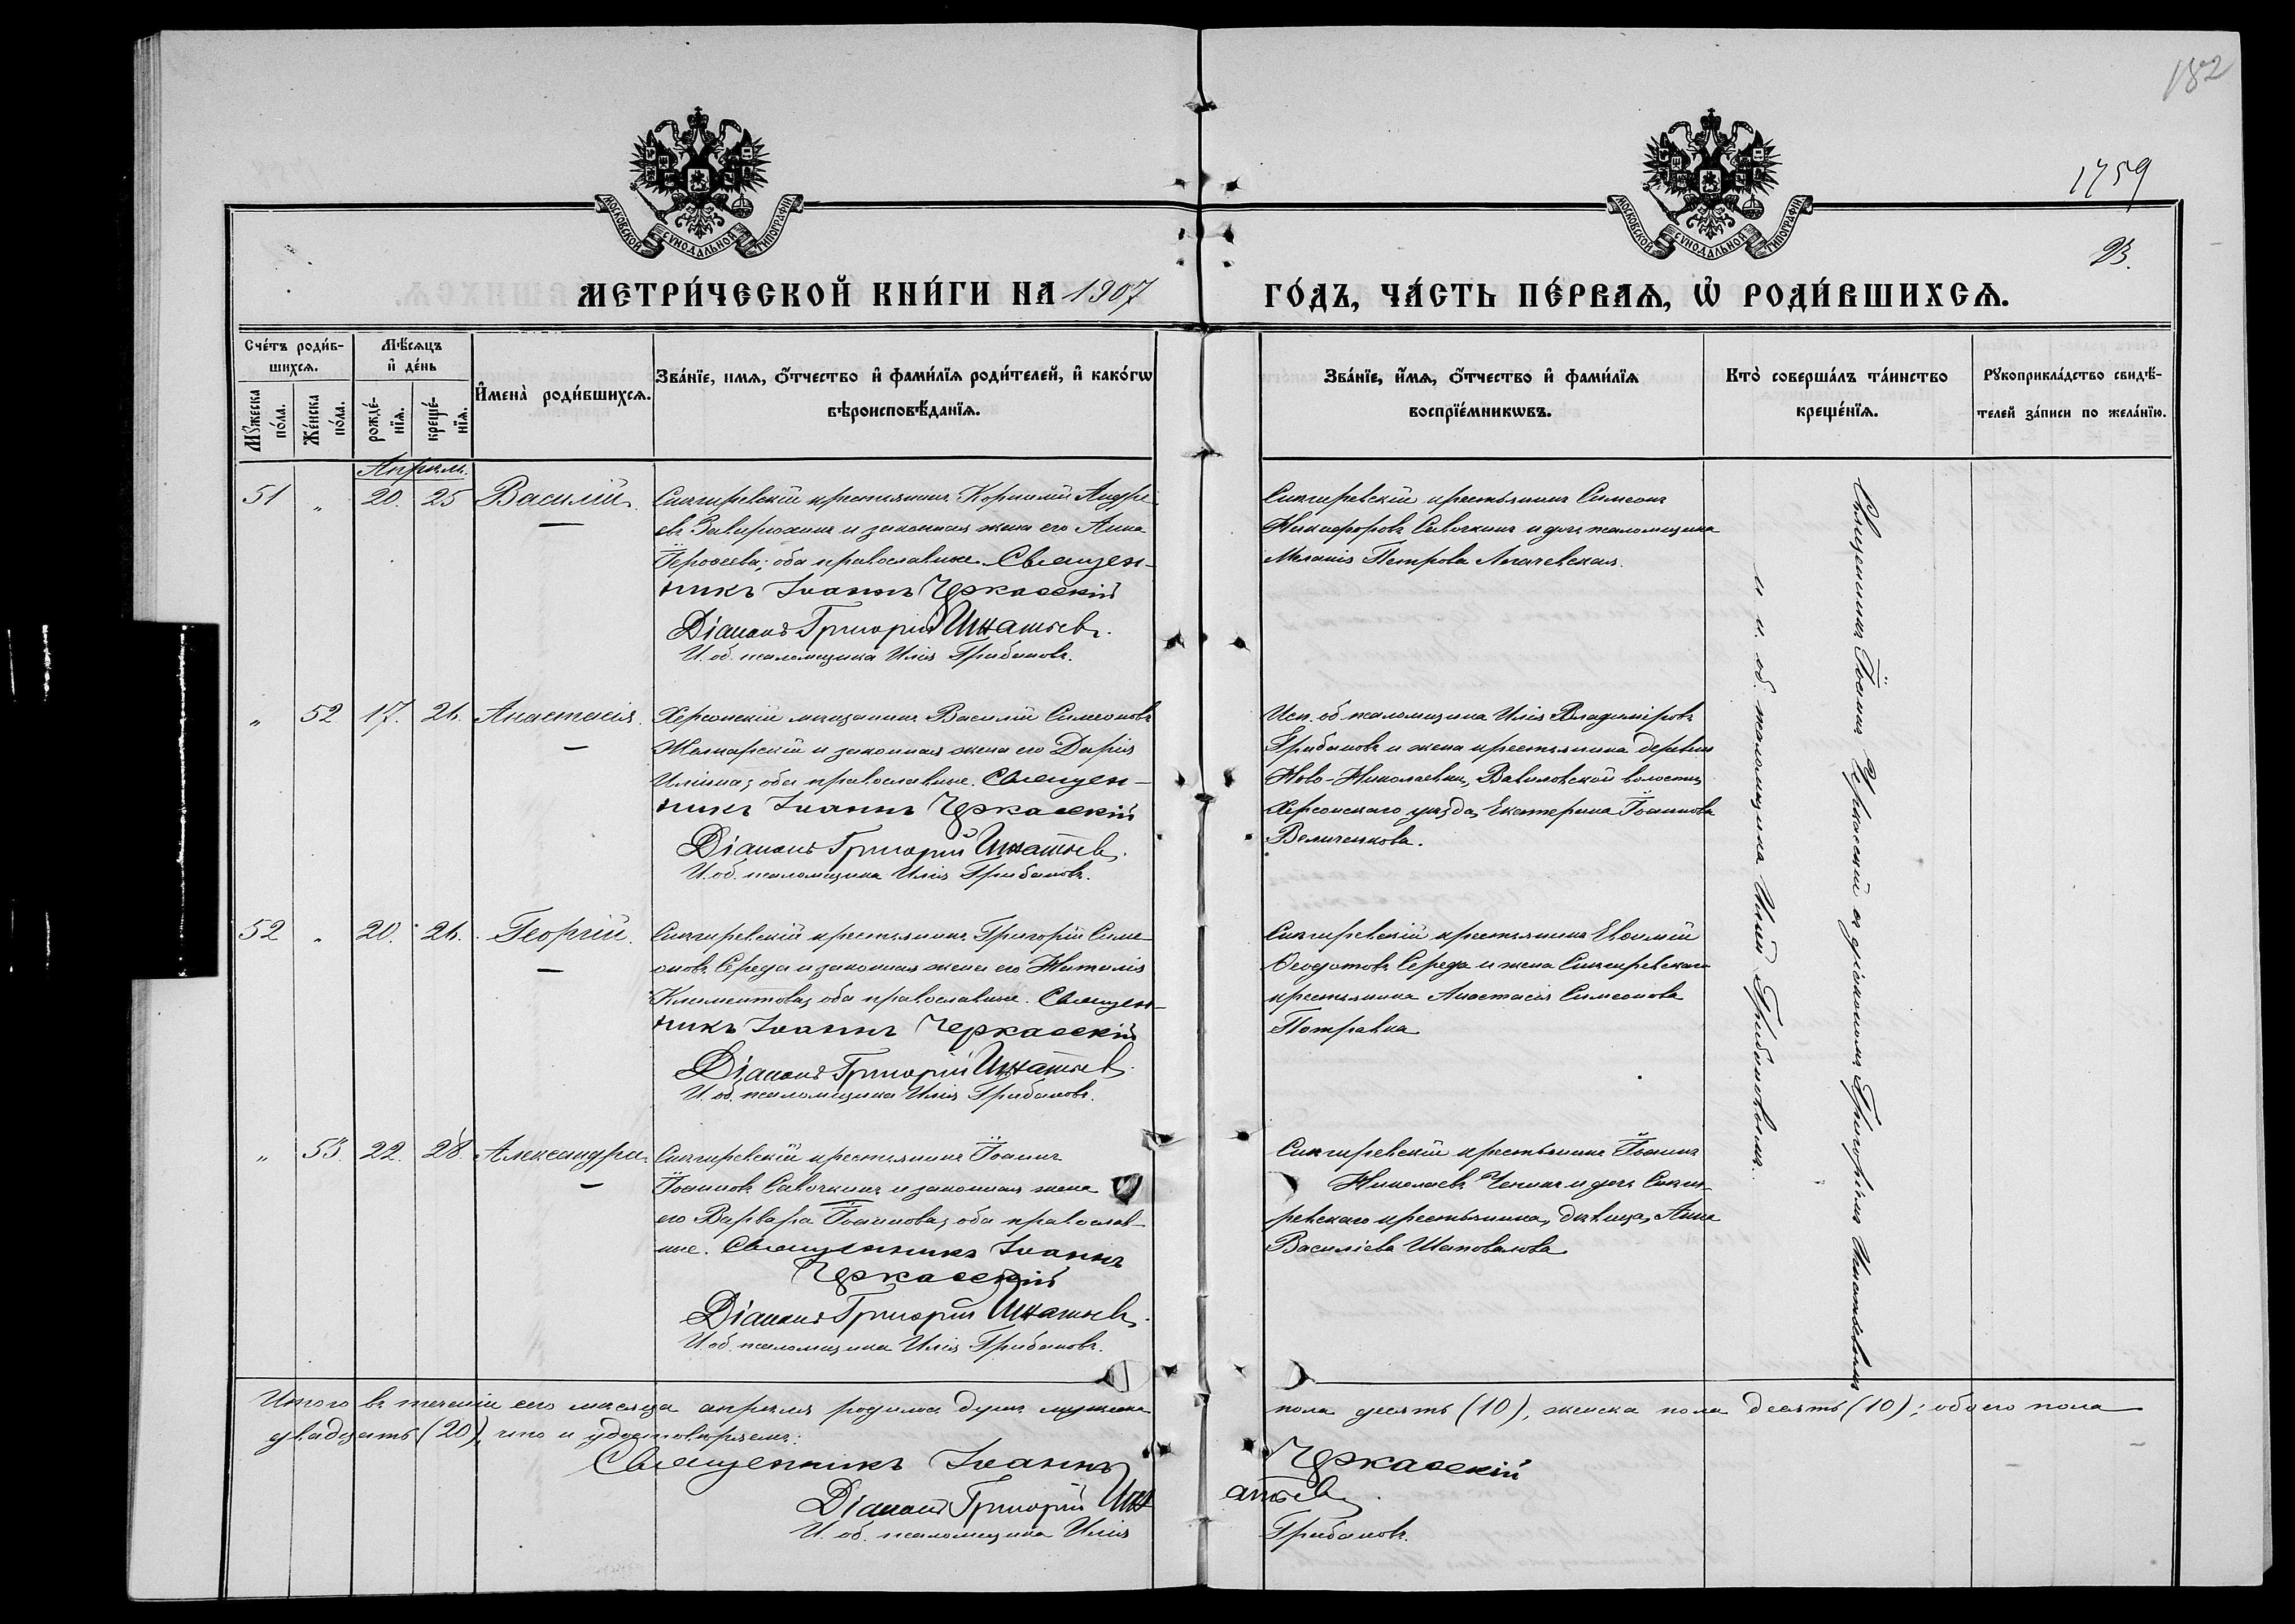 182
1759
23.
МОСКОВСКОЙ СѴНОДАЛЬНОЙ ТИПОГРАФІИ
МОСКОВСКОЙ СѴНОДАЛЬНОЙ ТИПОГРАФІИ
МЕТРИ́ЧЕСКОЙ КНИ́ГИ НА 1907 ГО́ДЪ, ЧА́СТЬ ПЕ́РВАЯ, Ѡ҆ РОДИ́ВШИХСЯ.
Сче́тъ роди́в-
шихся.
Мѣ́сяцъ
и҆ де́нь
Мꙋ́жеска по́ла.
Же́нска по́ла.
рожде́-
нїя.
креще́-
нїя.
И҆мена̀ роди́вшихся.
Зва́нїе, имя, о҆́тчество и҆ фами́лїя роди́телей, и҆ како́гѡ
вѣроисповѣ́данїя.
Зва́нїе, и҆́мя, о҆́тчество и҆ фами́лїя
воспрїе́мникѡвъ.
Кто̀ соверша́лъ та́инство
креще́нїя.
Рꙋкоприкла́дство свидѣ́-
телей за́писи по жела́нїю.
Апрѣль.
51 " 20. 25 Василій.
Снигиревскій крестьянинъ Корнилій Андре-
евъ Завирюхинъ и законная жена его Анна
Героѳеева; оба православные. Священ-
никъ Іоаннъ Черкасскій
Діаконъ Григорій Игнатьевъ.
И. об. псаломщика Илія Грибановъ.
Снигиревскій крестьянинъ Симеонъ
Никифоровъ Савочкинъ и дочь псаломщика
Меланія Петрова
" 52 17. 26. Анастасія.
Херсонскій мѣщанинъ Василій Симеоновъ
и законная жена его Дарія
Иліина; оба православные. Священ-
никъ Іоаннъ Черкасскій
Діаконъ Григорій Игнатьевъ.
И. об. псаломщика Илія Грибановъ.
Исп. об. псаломщика Илія Владиміровъ
Грибановъ и жена крестьянина деревни
Ново-Николаевки, Вавиловской волости,
Херсонскаго уѣзда, Екатерина Іоаннова
Величенкова.
52 " 20. 26. Георгій.
Снигиревскій крестьянинъ Григорій Симе-
оновъ Середа и законная жена его Наталія
Климентова; оба православные. Священ-
никъ Іоаннъ Черкасскій
Діаконъ Григорій Игнатьевъ.
И. об. псаломщика Илія Грибановъ.
Снигиревскій крестьянинъ Евѳимій
Ѳеодотовъ Середа и жена Снигиревскаго
крестьянина Анастасія Симеонова
" 53. 22. 28. Александра.
Снигиревскій крестьянинъ Іоаннъ
Іоанновъ Савочкинъ и законная жена
его Варвара Іоаннова; оба православ-
ные. Священникъ Іоаннъ
Черкасскій
Діаконъ Григорій Игнатьевъ.
И. об. псаломщика Илія Грибановъ.
Снигиревскій крестьянинъ Іоаннъ
Николаевъ и дочь Сниги-
ревскаго крестьянина, дѣвица, Анна
Василіева Шаповалова
Священникъ Іоаннъ Черкасскій съ діакономъ Григоріемъ Игнатьевымъ
и и. об. псаломщика Иліей Грибановымъ.
Итого въ теченіи сего мѣсяца апрѣля родилось душъ мужска пола десять (10), женска пола десять (10); обоего пола
двадцать (20), что и удостовѣряемъ:
Священникъ Іоаннъ Черкасскій
Діаконъ Григорій Игнатьевъ.
И. об. псаломщика Илія Грибановъ.